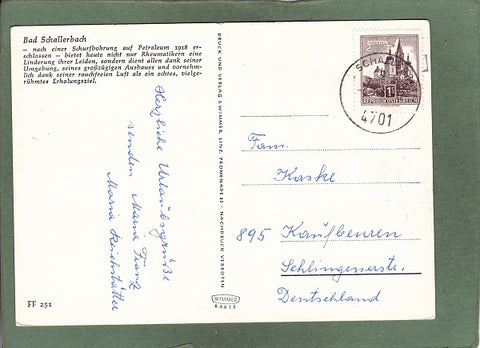 Bad Schallerbach
— nach einer Schurfbohrung auf Petroleum 1918 er-
schlossen — bietet heute nicht nur Rheumatikern eine
Linderung ihrer Leiden, sondern dient allen dank seiner
Umgebung, seines großzügigen Ausbaues und vornehm-
lich dank seiner rauchfreien Luft als ein echtes, vielge-
rühmtes Erholungsziel.
Herzliche Urlaubsgrüße
senden Maria Franz
Maria Reichstätter
FF 251
DRUCK UND VERLAG J. WIMMER, LINZ, PROMENADE 23 - NACHDRUCK VERBOTEN
WIMMER
KARTE
REPUBLIK ÖSTERREICH
4701
Fam.
Kaske
895 Kaufbeuren
Schlingenerstr.
Deutschland